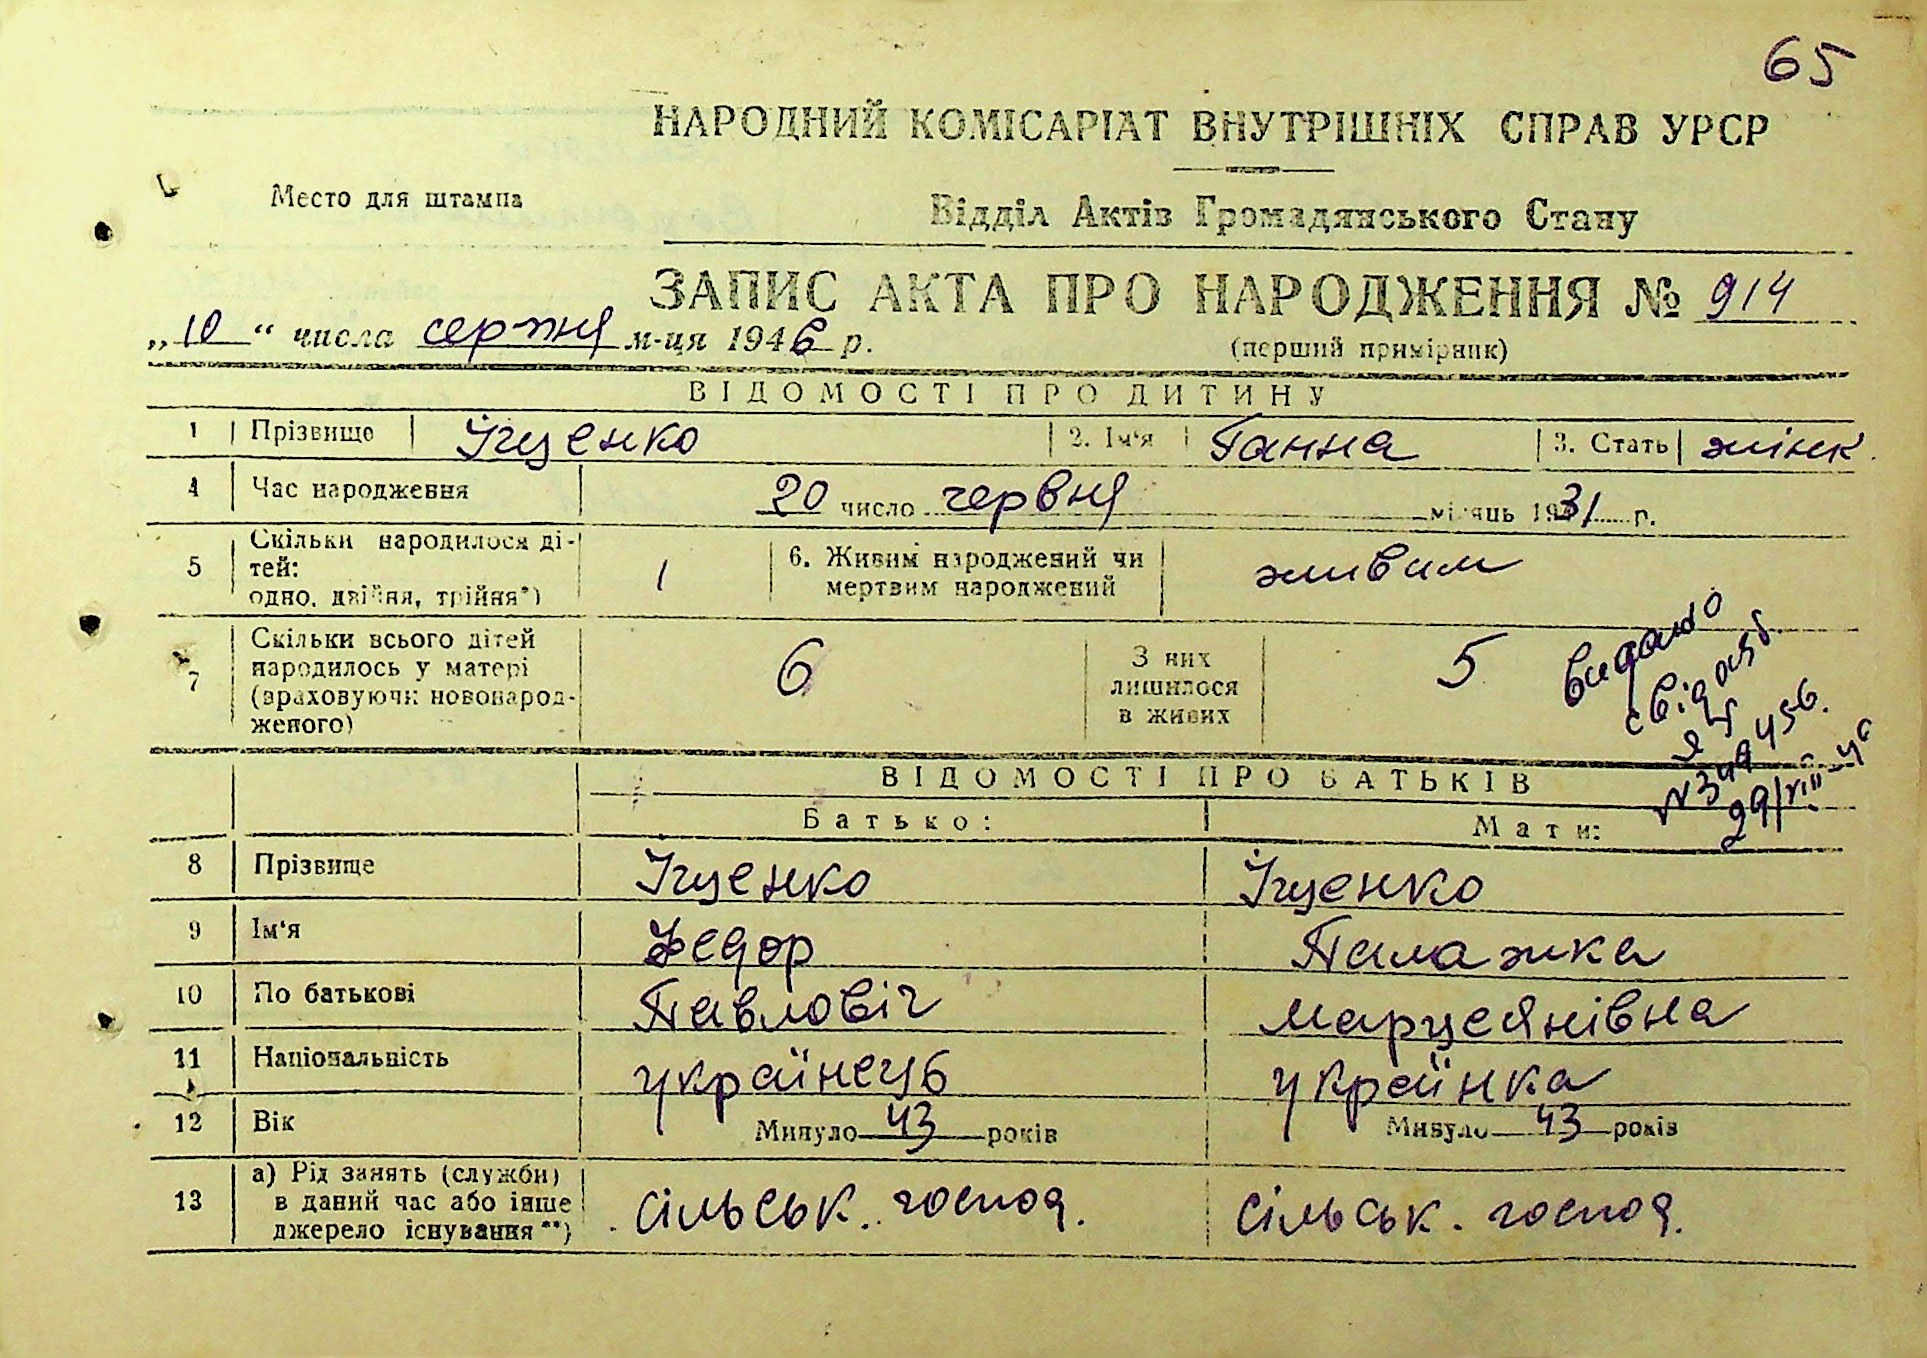 65
НАРОДНИЙ КОМІСАРІАТ ВНУТРІШНІХ СПРАВ УРСР
Место для штампа
Відділ Актів Громадянського Стану
ЗАПИС АКТА ПРО НАРОДЖЕННЯ № 914
„10“ числа серпня м-ця 1946 р.
(перший примірник)
ВІДОМОСТІ ПРО ДИТИНУ
1 Прізвище Іщенко 2. Ім'я Ганна 3. Стать жінк.
4 Час народження 20 число червня місяць 1931 р.
5 Скільки народилося ді-
тей:
одно, двійня, трійня*) 1 6. Живим народжений чи
мертвим народжений живим
7 Скільки всього дітей
народилось у матері
(враховуючи новонарод-
женого) 6 З них
лишилося
в живих 5
видано
№ 349456.
29/VIII-46
ВІДОМОСТІ ПРО БАТЬКІВ
Батько: Мати:
8 Прізвище Іщенко Іщенко
9 Ім'я Федор Палажка
10 По батькові Павловіч Марцеянівна
11 Національність українець українка
12 Вік Минуло 43 років Минуло 43 років
13 а) Рід занять (служби)
в даний час або інше
джерело існування**) сільськ. господ. сільськ. господ.